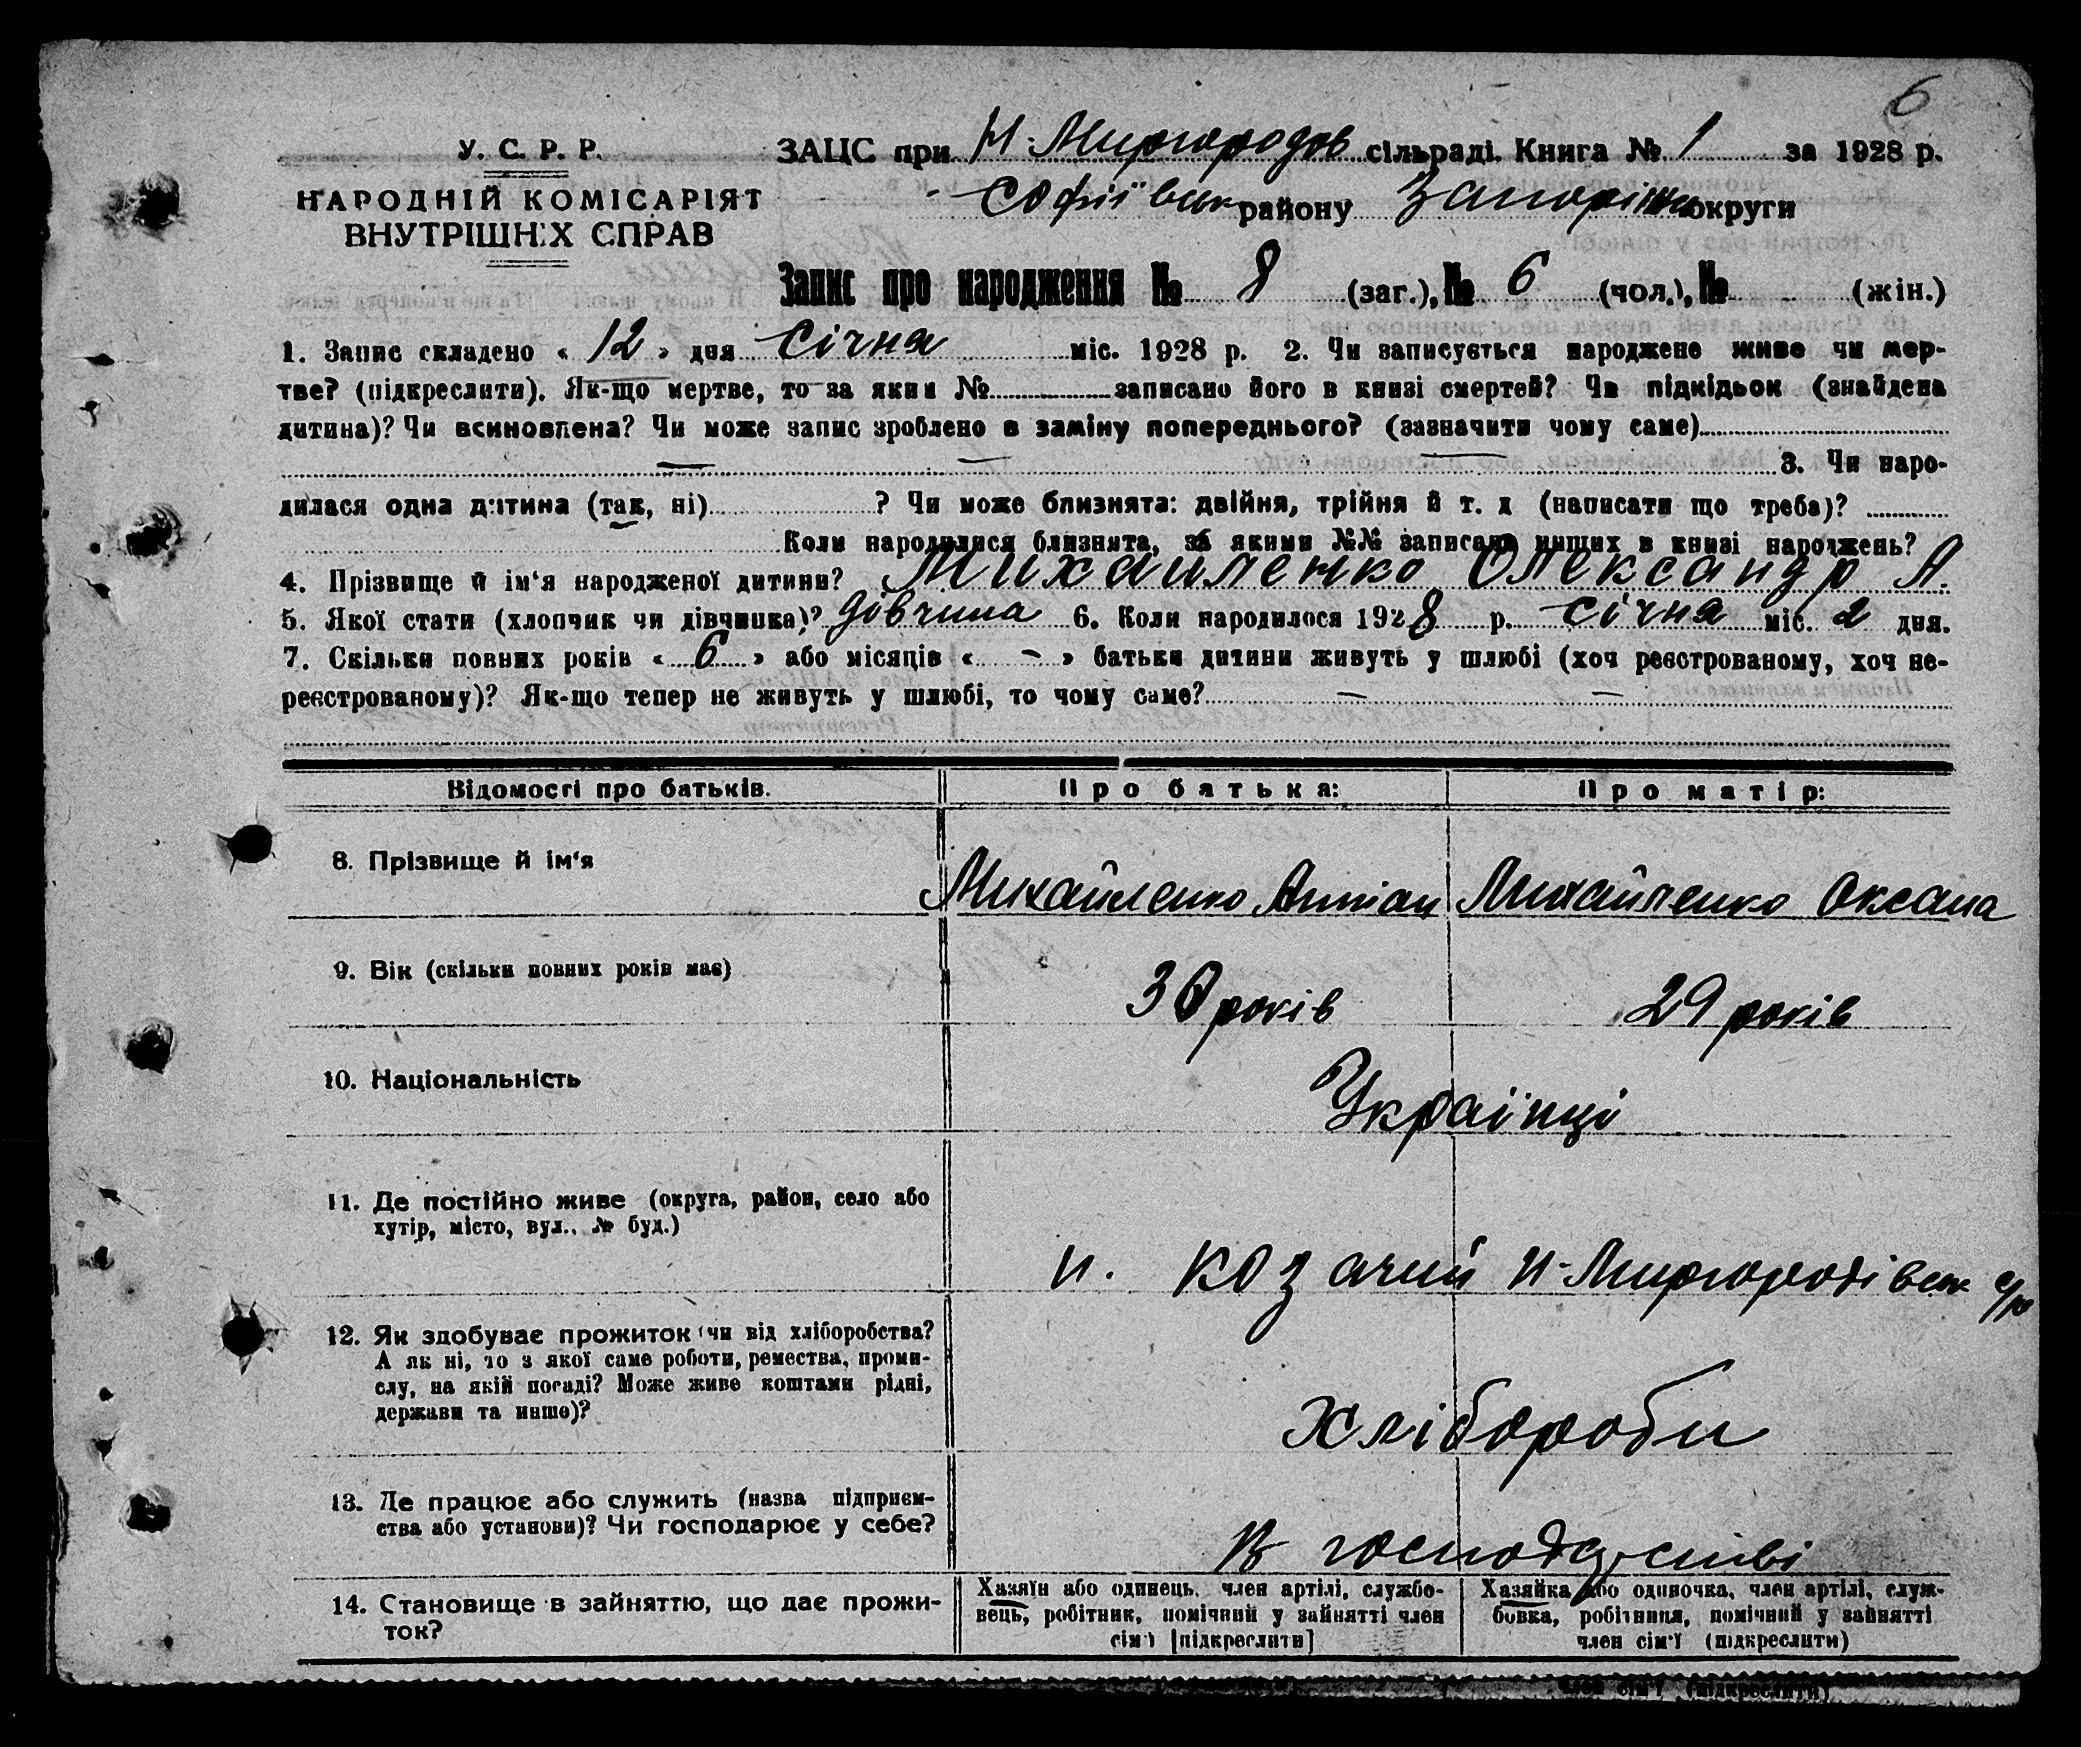 6
У. С. Р. Р.
НАРОДНІЙ КОМІСАРІЯТ
ВНУТРІШНІХ СПРАВ
ЗАЦС при Н-Миргородов сільраді. Книга № 1 за 1928 р.
Софіївськ району Запоріжж округи
Запис про народження № 8 (заг.), № 6 (чол.), № (жін.)
1. Запис складено « 12 » дня Січня міс. 1928 р. 2. Чи записується народжене живе чи мер-
тве? (підкреслити). Як-що мертве, то за яким № записано його в книзі смертей? Чи підкідьок (знайдена
дитина)? Чи всиновлена? Чи може запис зроблено в заміну попереднього? (зазначити чому саме)
— — — 3. Чи наро-
дилася одна дитина (так, ні) ? Чи може близнята: двійня, трійня й т. д (написати що треба)?
Коли народилися близнята, за якими №№ записано инших в книзі народжень?
4. Прізвище й ім‘я народженої дитини? Михайленко Олександр А.
5. Якої стати (хлопчик чи дівчинка)? дівчина 6. Коли народилося 1928 р. січня міс. 2 дня.
7. Скільки повних років « 6 » або місяців « - » батьки дитини живуть у шлюбі (хоч реєстрованому, хоч не-
реєстрованому)? Як-що тепер не живуть у шлюбі, то чому саме? — —
Відомості про батьків. Про батька: Про матір:
8. Прізвище й ім‘я
Михайленко Антіан Михайленко Оксана
9. Вік (скільки повних років має)
30 років 29 років
10. Національність
Українці
11. Де постійно живе (округа, район, село або
хутір, місто, вул., № буд.)
н. козачий Н-Миргородівськ с/р
12. Як здобуває прожиток (чи від хліборобства?
А як ні, то з якої саме роботи, ремества, проми-
слу, на якій посаді? Може живе коштами рідні,
держави та инше)?
Хлібороби
13. Де працює або служить (назва підприєм-
ства або установи)? Чи господарює у себе?
В господарстві
14. Становище в зайняттю, що дає прожи-
ток?
Хазяїн або одинець, член артілі, службо-
вець, робітник, помічний у зайнятті член
сім‘ї [підкреслити]
Хазяйка або одиночка, член артілі, служ-
бовка, робітниця, помічний у зайнятті
член сім‘ї (підкреслити)
член сім‘ї (підкреслити)